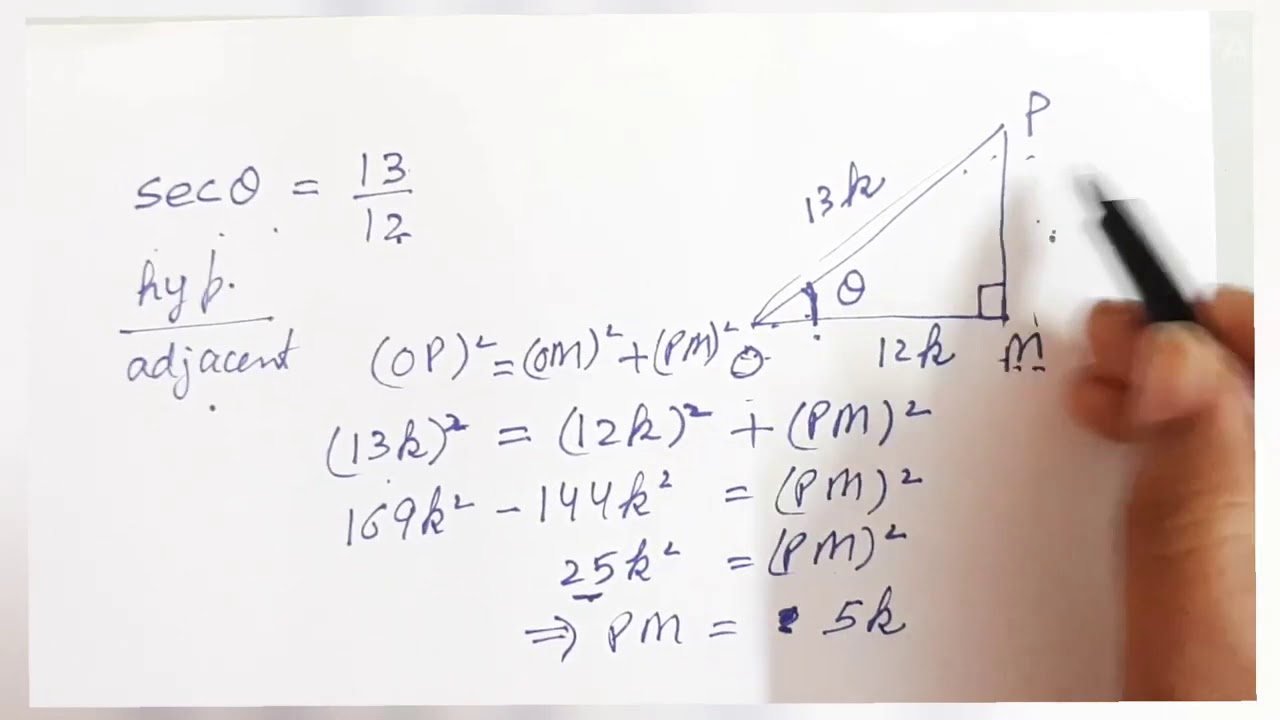 secθ = 13/12
hyp.
adjacent
P
13k
θ
O
12k
M
(OP)² = (OM)² + (PM)²
(13k)² = (12k)² + (PM)²
169k² - 144k² = (PM)²
25k² = (PM)²
⇒ PM = 5k